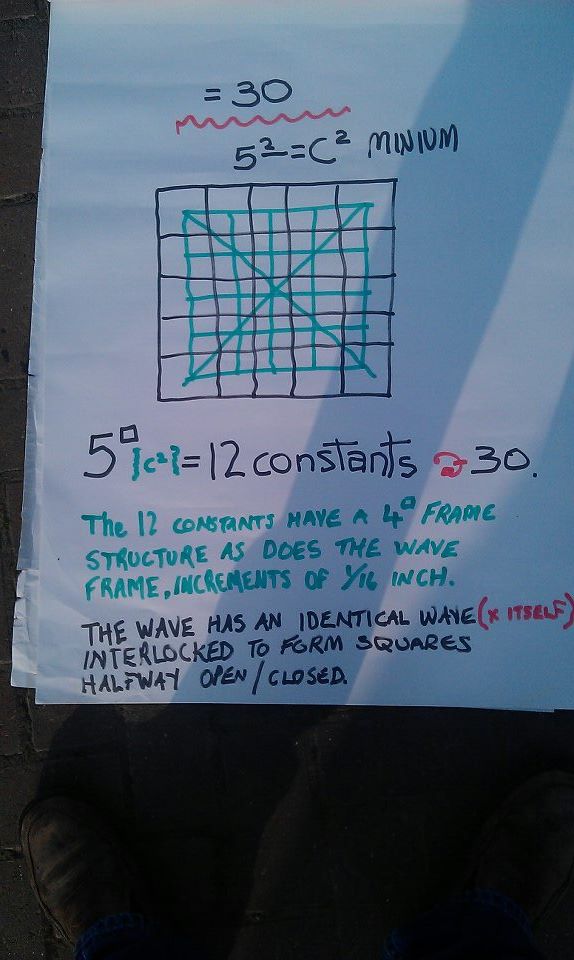 = 30
5² = C² MINIUM
5□ {c²} = 12 constants 30.
The 12 CONSTANTS HAVE A 4□ FRAME
STRUCTURE AS DOES THE WAVE
FRAME, INCREMENTS OF 1/16 INCH.
THE WAVE HAS AN IDENTICAL WAVE (X ITSELF)
INTERLOCKED TO FORM SQUARES
HALFWAY OPEN / CLOSED.